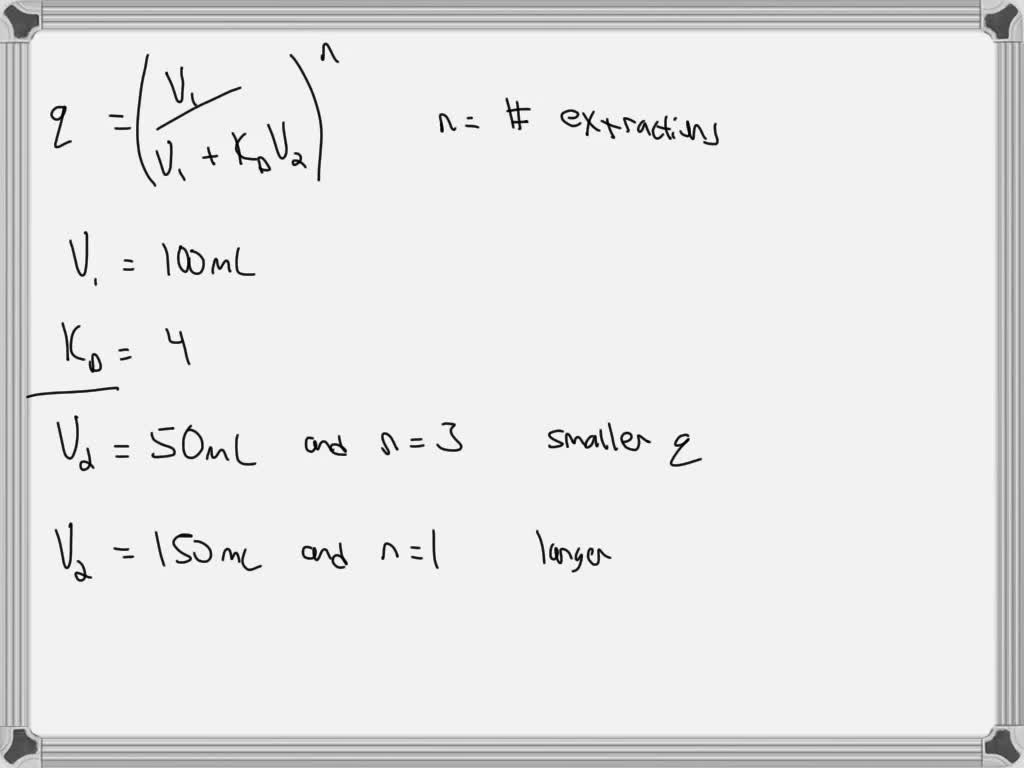 q = (V₁ / V₁ + K_D V₂)ⁿ n = # extractions
V₁ = 100mL
K_D = 4
V₂ = 50mL and n = 3 smaller q
V₂ = 150mL and n = 1 larger